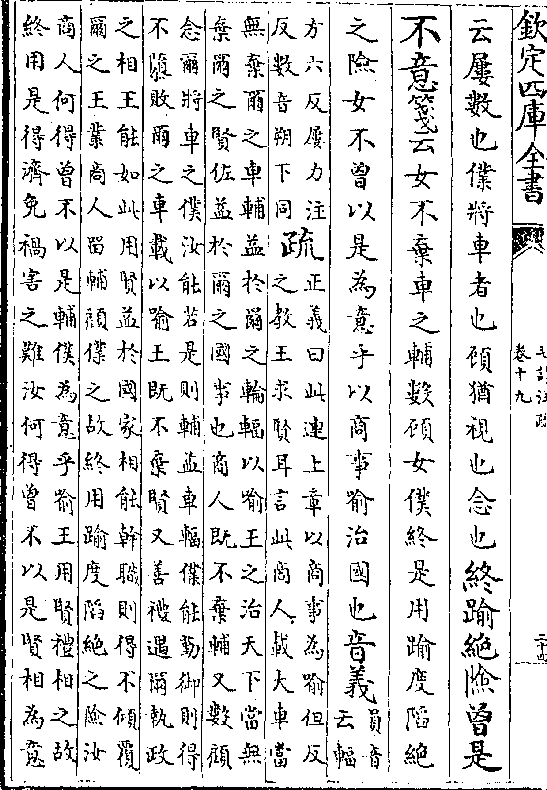 欽定四庫全書
毛詩注疏
卷十九
二十四
云屢數也僕將車者也顧猶視也念也終踰絶險曾是
不意箋云女不棄車之輔數顧女僕終是用踰度陷絶
之險女不曾以是為意乎以商事喻治國也音義員音云輻
方六反屢力注反數音朔下同疏正義曰此連上章以商事為喻但反之教王求賢耳言此商人載大車當
無棄爾之車輔益於爾之輪輻以喻王之治天下當無
棄爾之賢佐益於爾之國事也商人既不棄輔又數顧
念爾將車之僕汝能若是則輔益車輻僕能勤御則得
不墮敗爾之車載以喻王既不棄賢又善禮遇爾執政
之相王能如此用賢益於國家相能幹職則得不傾覆
爾之王業商人留輔顧僕之故終用踰度陷絶之險汝
商人何得曾不以是輔僕為意乎喻王用賢禮相之故
終用是得濟免禍害之難汝何得曾不以是賢相為意